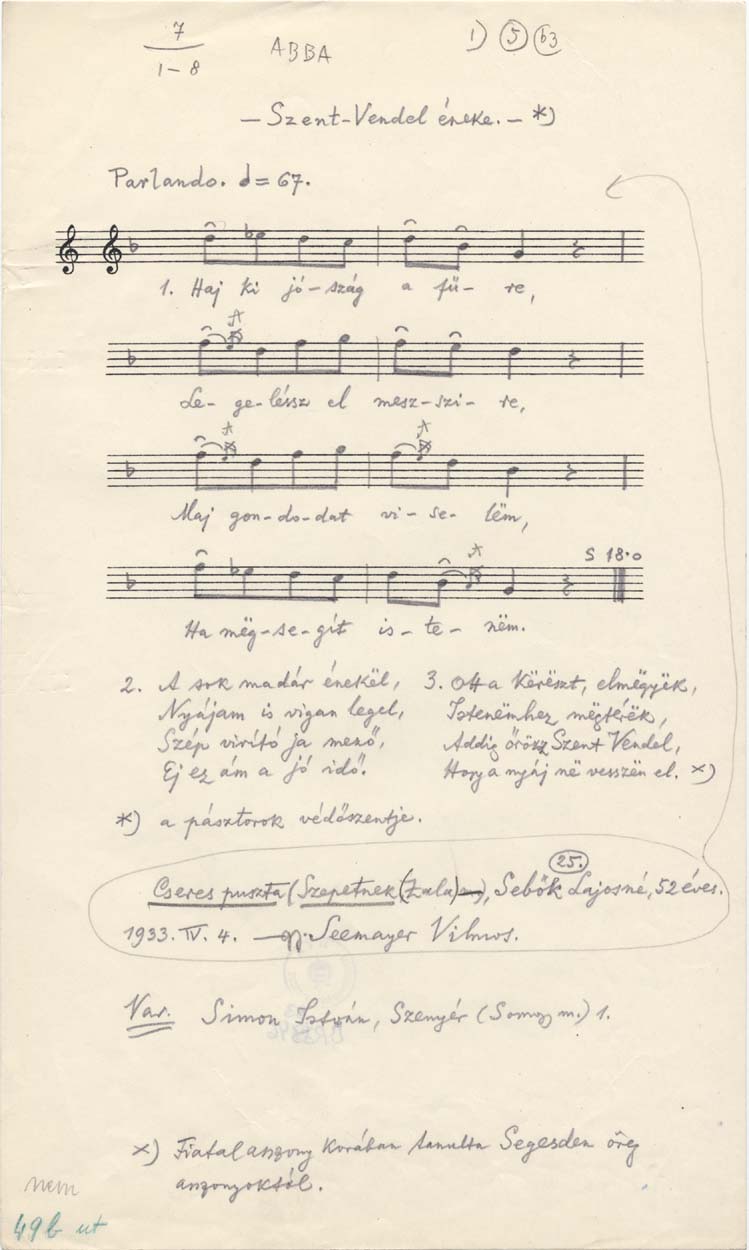 7
1–8
ABBA
1) 5 b3
– Szent-Vendel éneke. – *)
Parlando. = 67.
1. Haj ki jó – szág a fü – re,
Le- ge-léssz el mesz-szi- re,
Maj gon-do-dat vi- se- lëm,
S 18·0
Ha mëg-se-gít is- te- nëm.
2. A sok madár énekël,
Nyájam is vigan legel,
Szép virító ja menő,
Ej ez ám a jó idő.
3. Ott a Kërëszt, elmëgyëk,
Istenëmhez mëgtérëk,
Addig őrözz Szent Vendel,
Hogy a nyáj në vesszën el. x)
*) a pásztorok védőszentje.
25.
Cseres puszta (Szepetnek (Zala), Sebők Lajosné, 52 éves.
1933. IV. 4. Seemayer Vilmos.
Var. Simon István, Szenyér (Somogy m.) 1.
x) Fiatalasszony korában tanulta Segesden öreg
asszonyoktól.
nem
49b ut